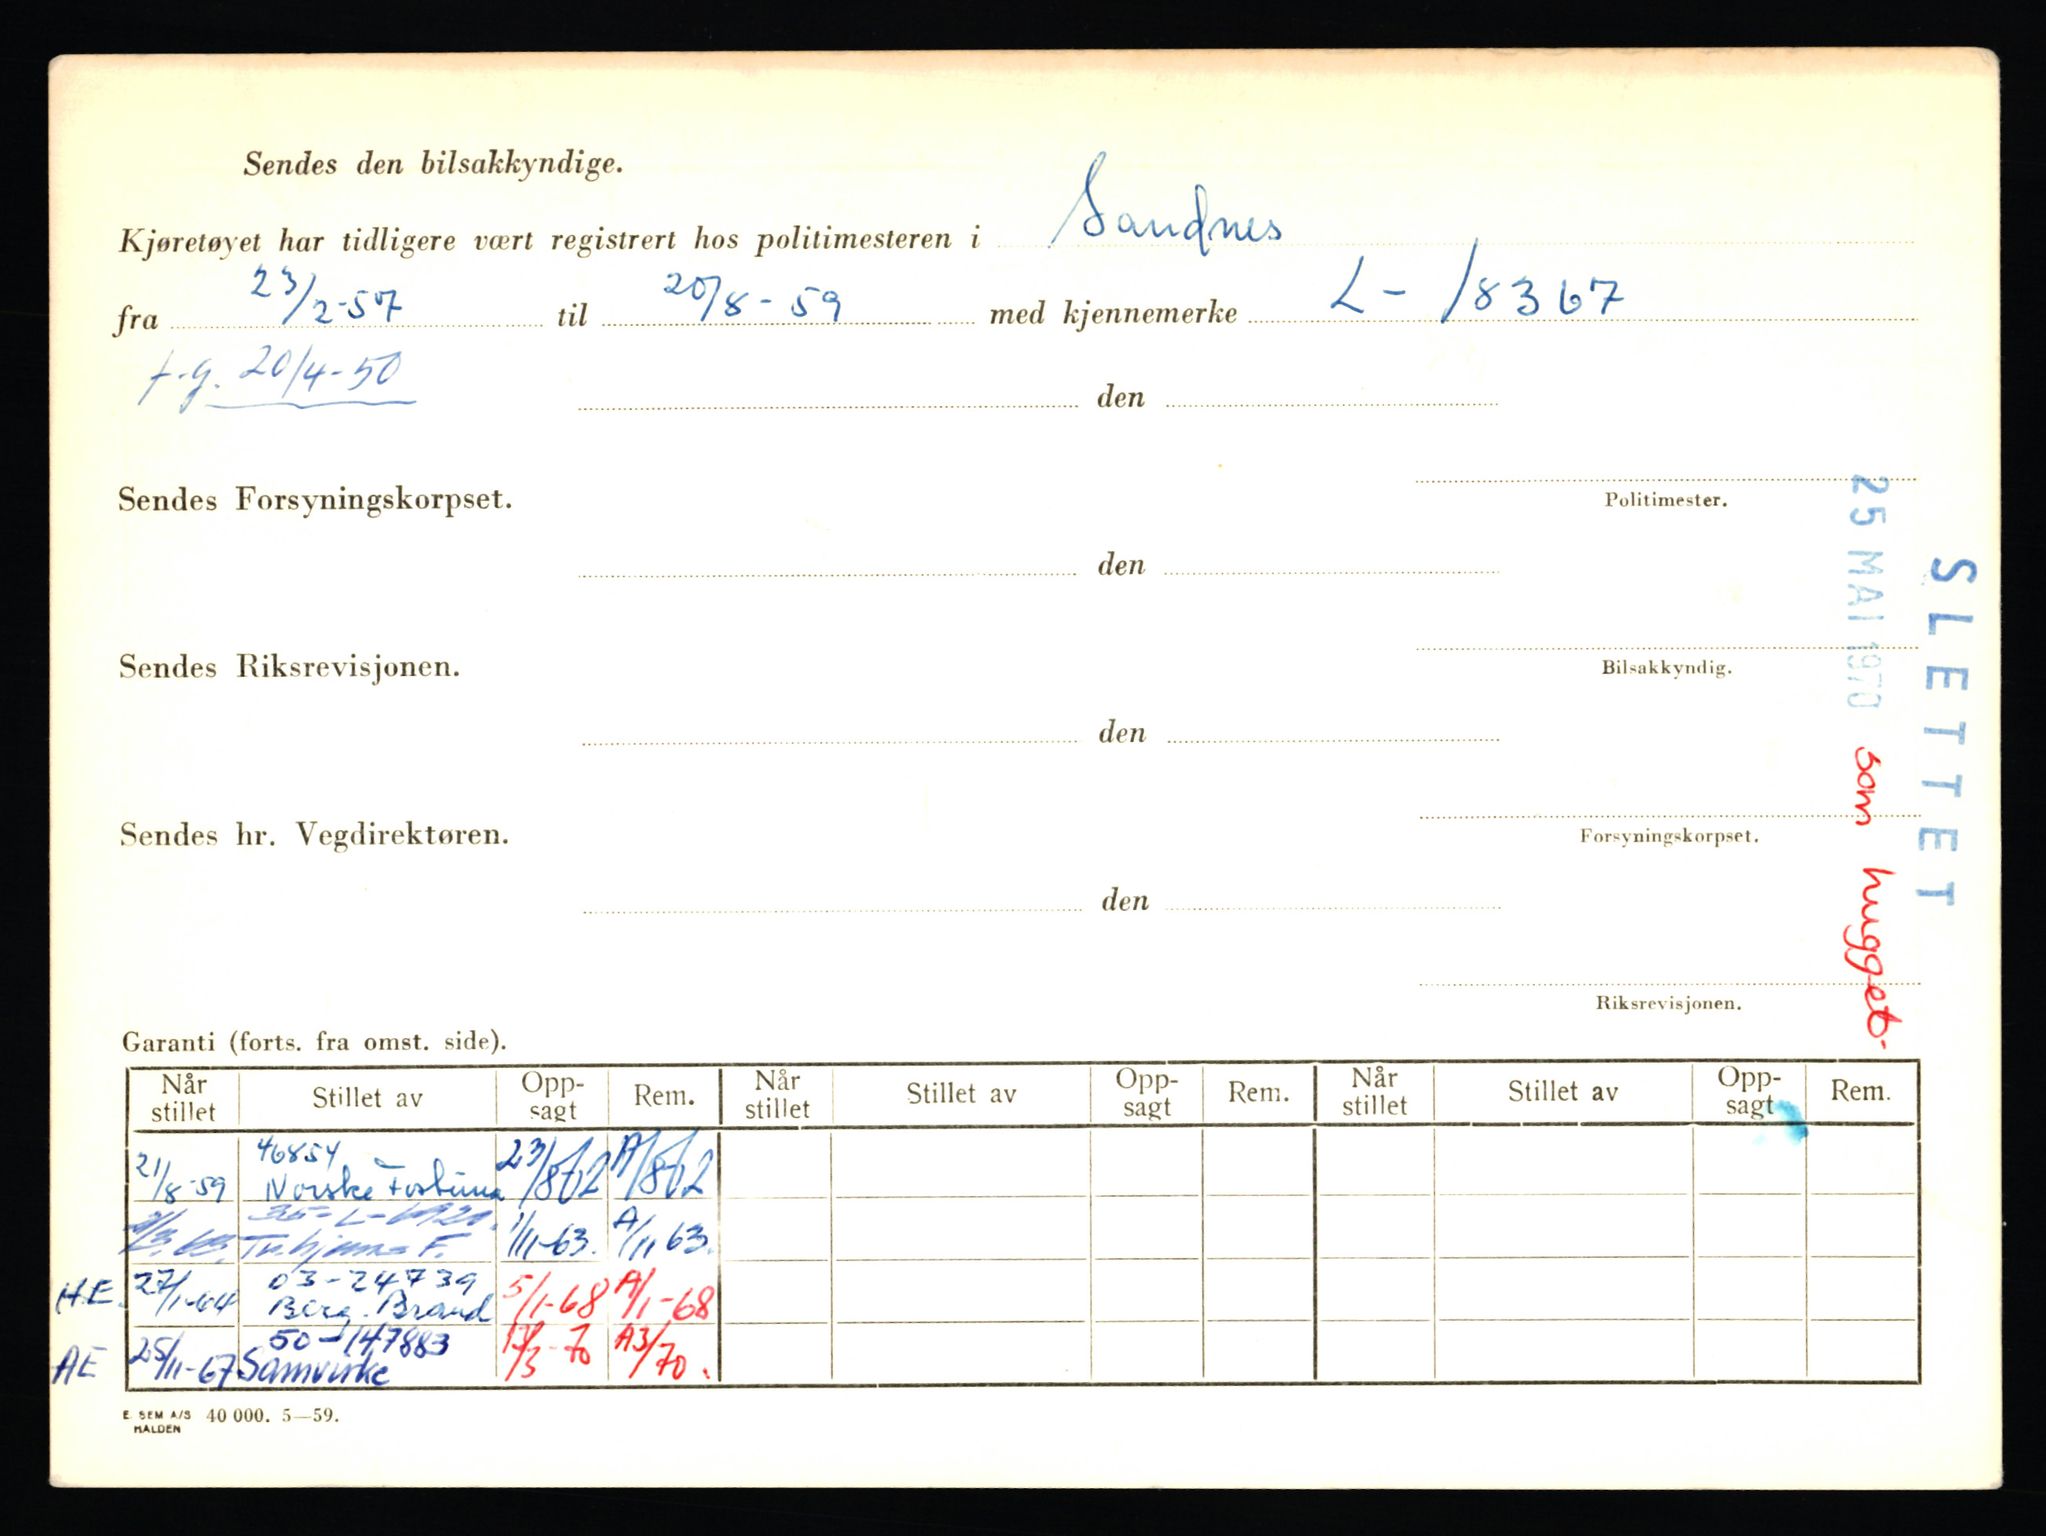 Sendes den bilsakkyndige.
Kjøretøyet har tidligere vært registrert hos politimesteren i Sandnes
fra 23/2-57 til 20/8-59 med kjennemerke L-18367
f.g. 20/4-50
den
Politimester.
Sendes Forsyningskorpset.
den
Bilsakkyndig.
Sendes Riksrevisjonen.
den
Forsyningskorpset.
Sendes hr. Vegdirektøren.
den
Riksrevisjonen.
SLETTET
25 MAI 1970 som hugget.
Garanti (forts. fra omst. side).
Når stillet Stillet av Opp-sagt Rem. Når stillet Stillet av Opp-sagt Rem. Når stillet Stillet av Opp-sagt Rem.
46854
21/8-59 Norske Fortuna 23/8-62 A/8-62
35-L-
F. 1/11-63. A/11 63.
03-24739
H.E. 27/1-64 Berg. Brand 5/1-68 A/1-68
50-147883
AE 25/11-67 Samvirke /3-70 A3/70.
E. SEM A/S 40 000. 5—59.
HALDEN